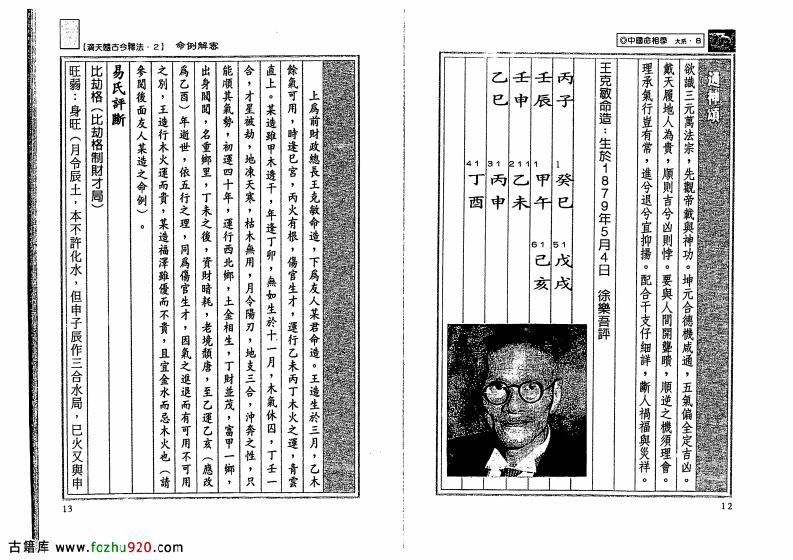 ◎中國命相學　大系・8
通神頌
欲識三元萬法宗，先觀帝載與神功。坤元合德機咸通，五氣偏全定吉凶。
戴天履地人為貴，順則吉兮凶則悖。要與人間開聾瞶，順逆之機須理會。
理承氣行豈有常，進兮退兮宜抑揚。配合干支仔細詳，斷人禍福與災祥。
王克敏命造：生於1879年5月4日　徐樂吾評
丙子
壬辰
壬申
乙巳
1 癸巳
11 甲午
21 乙未
31 丙申
41 丁酉
51 戊戌
61 己亥
12
【滴天髓古今釋法・2】　命例解密
上為前財政總長王克敏命造，下為友人某君命造。王造生於三月，乙木
餘氣可用，時逢巳宮，丙火有根，傷官生才，運行乙未丙丁木火之運，青雲
直上。某造雖甲木透干，年逢丁卯，無如生於十一月，木氣休囚，丁壬一
合，才星被劫，地凍天寒，枯木無用，月令陽刃，地支三合，沖奔之性，只
能順其氣勢，初運四十年，運行西北鄉，土金相生，丁財並茂，富甲一鄉，
出身閥閱，名重鄉里，丁未之後，資財暗耗，老境頹唐，至乙運乙亥（應改
為乙酉）年逝世，依五行之理，同為傷官生才，因氣之進退而有可用不可用
之別，王造行木火運而貴，某造福澤雖優而不貴，且宜金水而忌木火也（請
參閱後面友人某造之命例）。
易氏評斷
比劫格（比劫格制財才局）
旺弱：身旺（月令辰土，本不許化水，但申子辰作三合水局，巳火又與申
13
古籍库 www.fozhu920.com